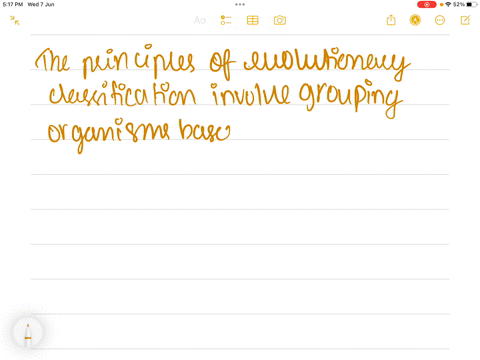 5:17 PM Wed 7 Jun
52%
Aa
The principles of evolutionary
classification involve grouping
organisms base